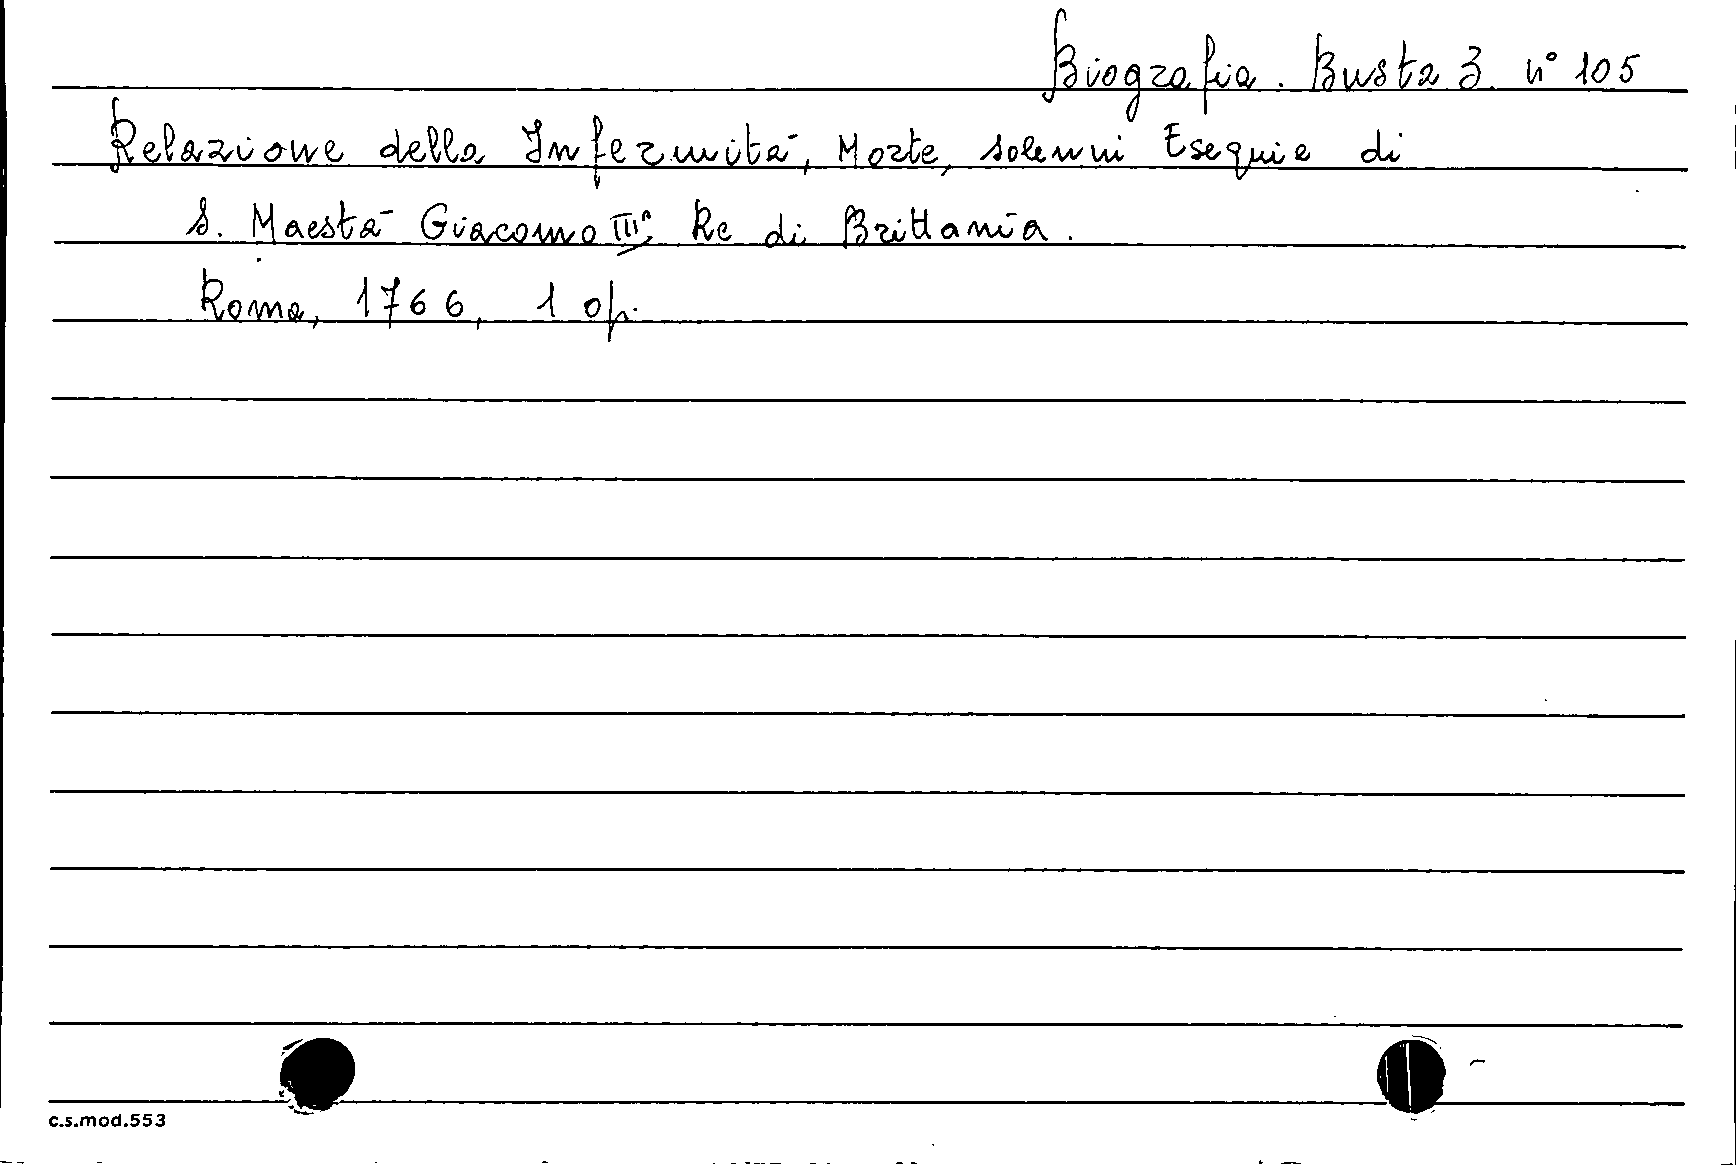 Biografia. Busta 3. n° 105
Relazione della Infermità, Morte, solenni Esequie di
S. Maestà Giacomo III° Re di Brittania.
Roma, 1766, 1 op.
c.s.mod.553